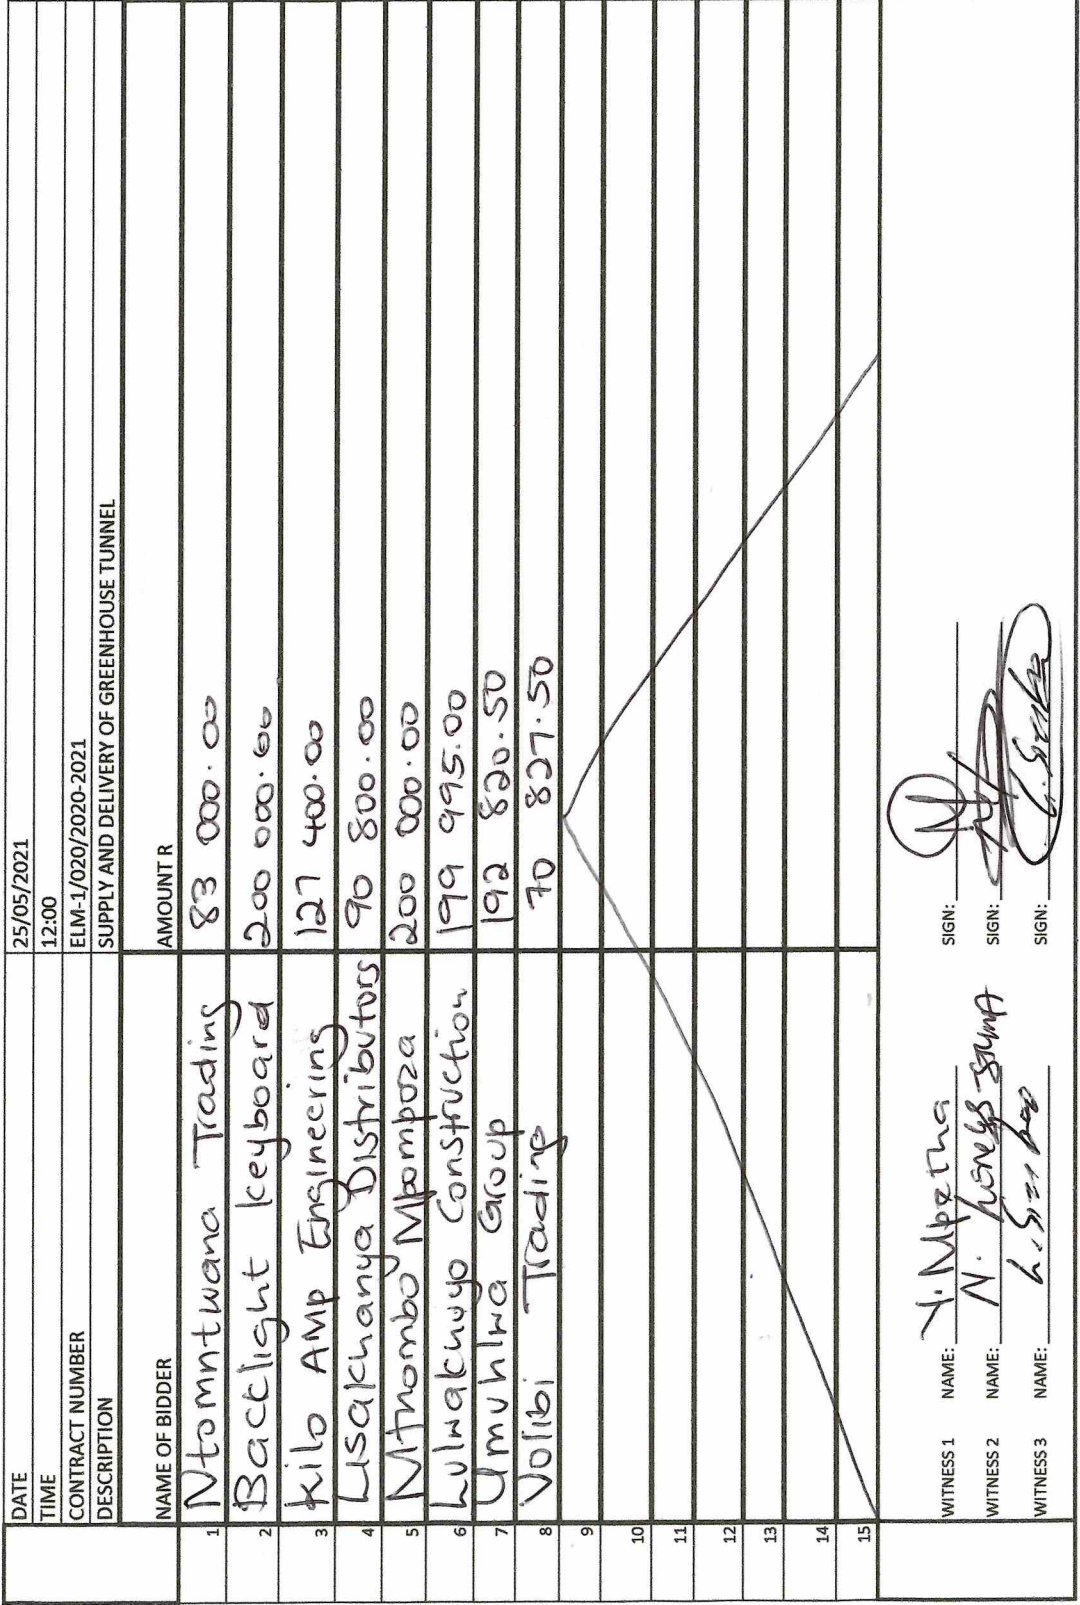 DATE 25/05/2021
TIME 12:00
CONTRACT NUMBER ELM-1/020/2020-2021
DESCRIPTION SUPPLY AND DELIVERY OF GREENHOUSE TUNNEL
NAME OF BIDDER AMOUNT R
1 Ntomntwana Trading 83 000.00
2 Backlight keyboard 200 000.00
3 Kilo AMp Engineering 127 400.00
4 Lisakhanya Distributors 90 800.00
5 Mthombo Mpompoza 200 000.00
6 Lulwakhuyo Construction 199 995.00
7 Umuhlwa Group 192 820.50
8 Volibi Trading 70 827.50
9
10
11
12
13
14
15
WITNESS 1 NAME: Y. Mpetha SIGN:
WITNESS 2 NAME: N. SIGN:
WITNESS 3 NAME: SIGN: